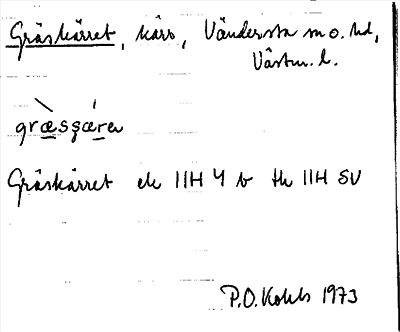 Gräskärret, kärr, Vändersta m o. hd,
Västm. l.
græsçæreṛ
Gräskärret ek 11H 4 b th 11H SV
P.O. Kohls 1973